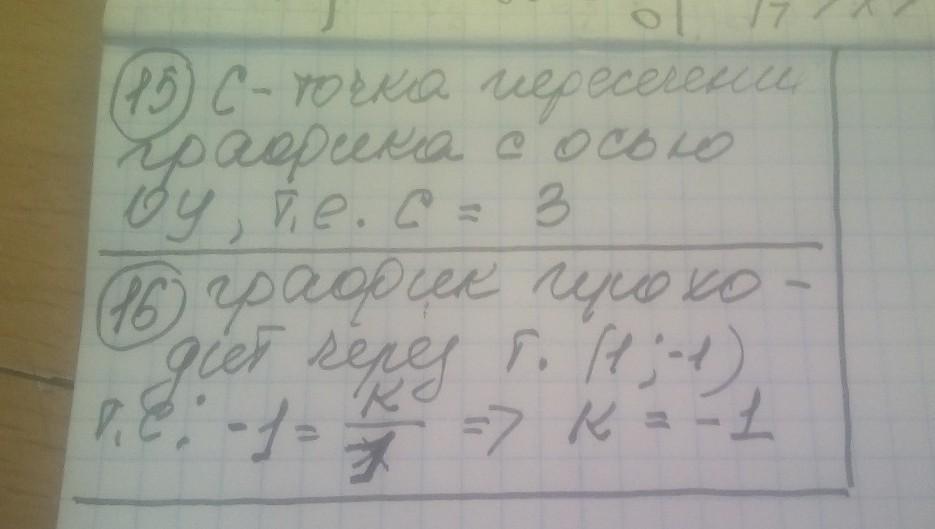 15 С - точка пересечения
графика с осью
ОУ, т.е. С = 3
16 график прохо-
дит через т. (1; -1)
т.е. -1 = К/1 => К = -1